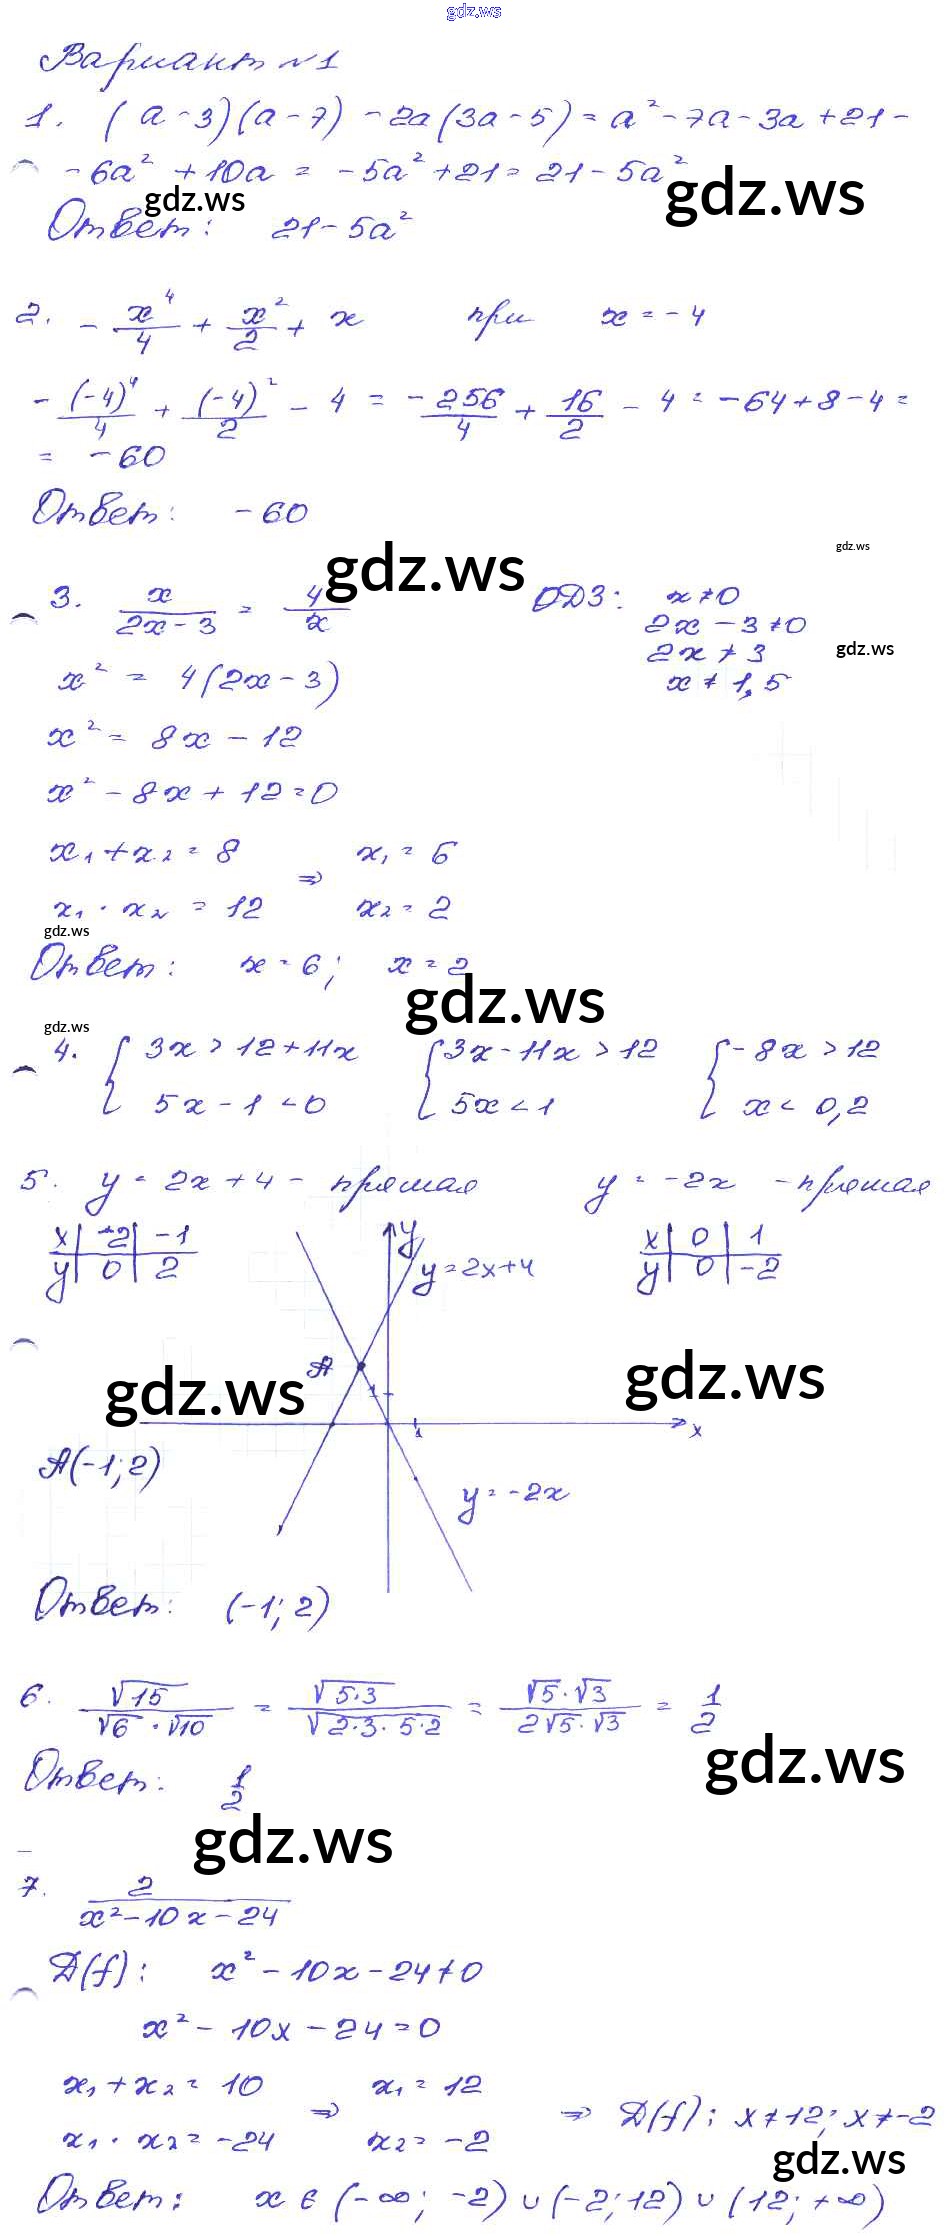 gdz.ws
Вариант №1
1. (a - 3)(a - 7) - 2a(3a - 5) = a² - 7a - 3a + 21 -
- 6a² + 10a = - 5a² + 21 = 21 - 5a²
gdz.ws
gdz.ws
Ответ: 21 - 5a²
2. - x⁴/4 + x²/2 + x при x = - 4
- (-4)⁴/4 + (-4)²/2 - 4 = - 256/4 + 16/2 - 4 = - 64 + 8 - 4 =
= - 60
Ответ: - 60
gdz.ws
gdz.ws
3. x/(2x - 3) = 4/x ОДЗ: x ≠ 0
2x - 3 ≠ 0
2x ≠ 3
gdz.ws
x² = 4(2x - 3) x ≠ 1,5
x² = 8x - 12
x² - 8x + 12 = 0
x₁ + x₂ = 8 ⇒ x₁ = 6
x₁ · x₂ = 12 x₂ = 2
gdz.ws
Ответ: x = 6; x = 2
gdz.ws
gdz.ws
4. { 3x > 12 + 11x { 3x - 11x > 12 { - 8x > 12
5x - 1 < 0 5x < 1 x < 0,2
5. y = 2x + 4 - прямая y = - 2x - прямая
x | -2 | -1 y x | 0 | 1
y | 0 | 2 y = 2x + 4 y | 0 | -2
A
gdz.ws
gdz.ws
1
1
x
A(-1; 2)
y = - 2x
Ответ: (-1; 2)
6. √15/(√6 · √10) = √(5·3)/√(2·3·5·2) = (√5 · √3)/(2√5 · √3) = 1/2
gdz.ws
Ответ: 1/2
gdz.ws
7. 2/(x² - 10x - 24)
D(f): x² - 10x - 24 ≠ 0
x² - 10x - 24 = 0
x₁ + x₂ = 10 ⇒ x₁ = 12 ⇒ D(f): x ≠ 12; x ≠ -2
x₁ · x₂ = -24 x₂ = -2
gdz.ws
Ответ: x ∈ (-∞; -2) ∪ (-2; 12) ∪ (12; +∞)